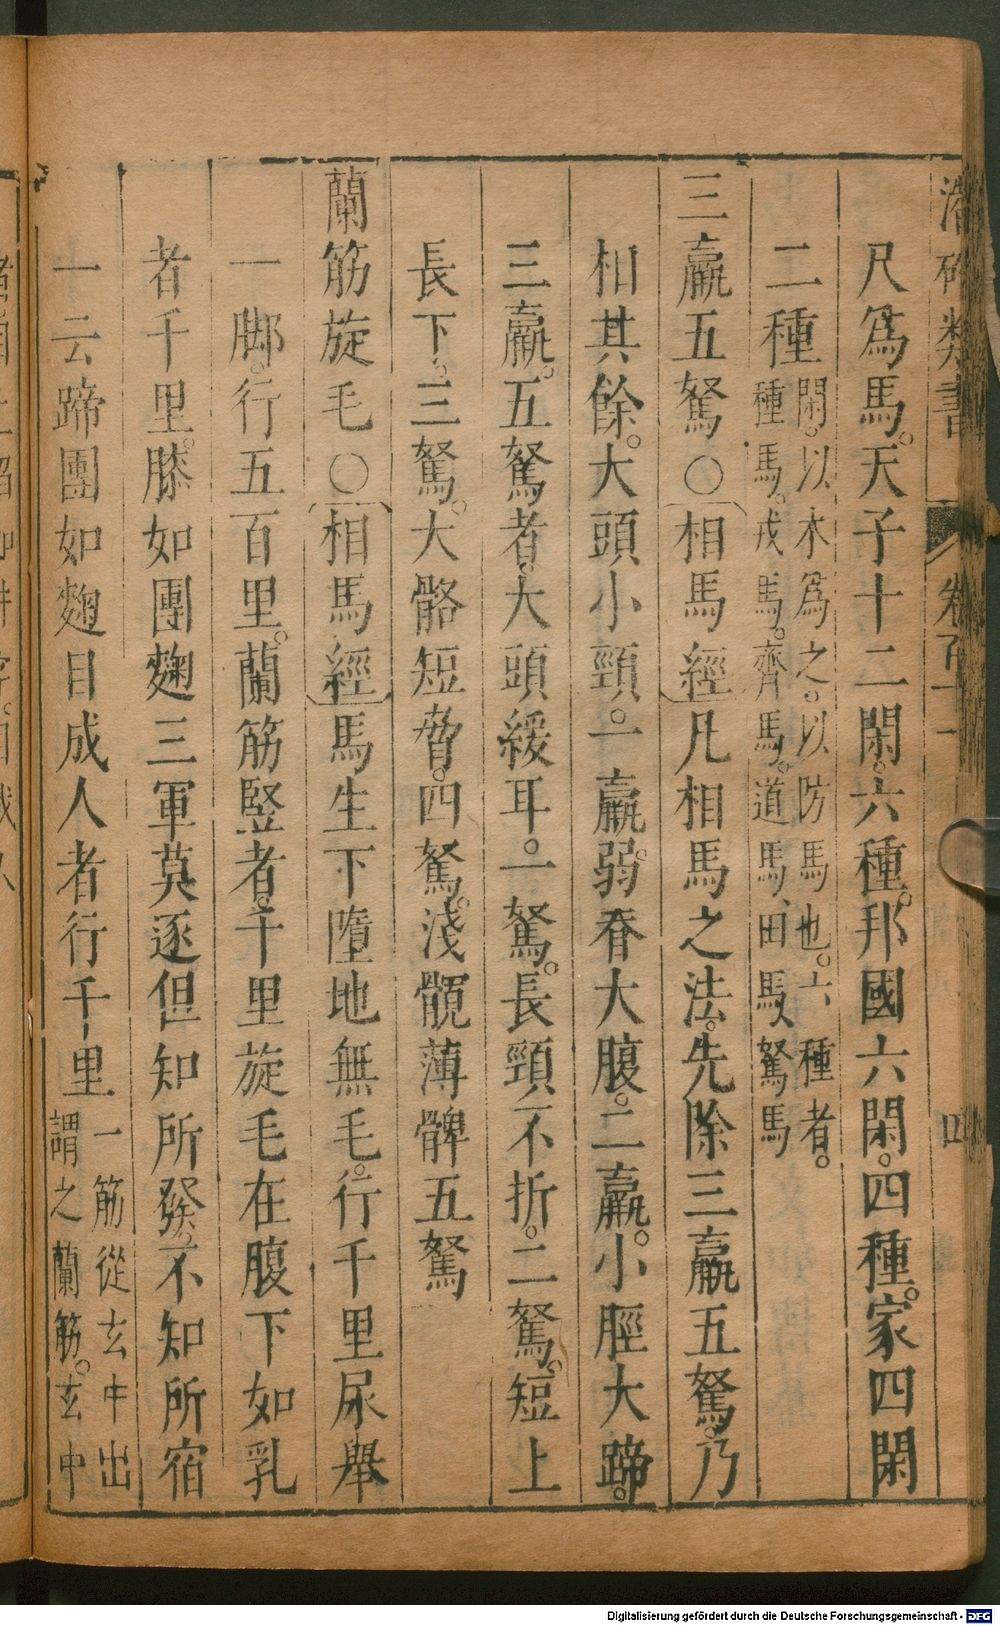 潛確類書 卷百十一 四
尺爲馬。天子十二閑。六種。邦國六閑。四種。家四閑
二種閑。以木爲之。以防馬也。六種者。種馬。戎馬。齊馬。道馬、田馬、駑馬
三羸五駑〇相馬經凡相馬之法。先除三羸五駑。乃
相其餘。大頭小頸。一羸。弱脊大腹。二羸。小脛大蹄。
三羸。五駑者。大頭緩耳。一駑。長頸不折。二駑。短上
長下。三駑。大髂短脅。四駑。淺髖薄髀五駑
蘭筋旋毛〇相馬經馬生下墮地無毛。行千里尿舉
一脚。行五百里。蘭筋竪者。千里旋毛在腹下如乳
者千里。膝如團麴三軍莫逐但知所發。不知所宿
一云蹄團如麴目成人者行千里一筋從玄中出謂之蘭筋。玄中
Digitalisierung gefördert durch die Deutsche Forschungsgemeinschaft - DFG